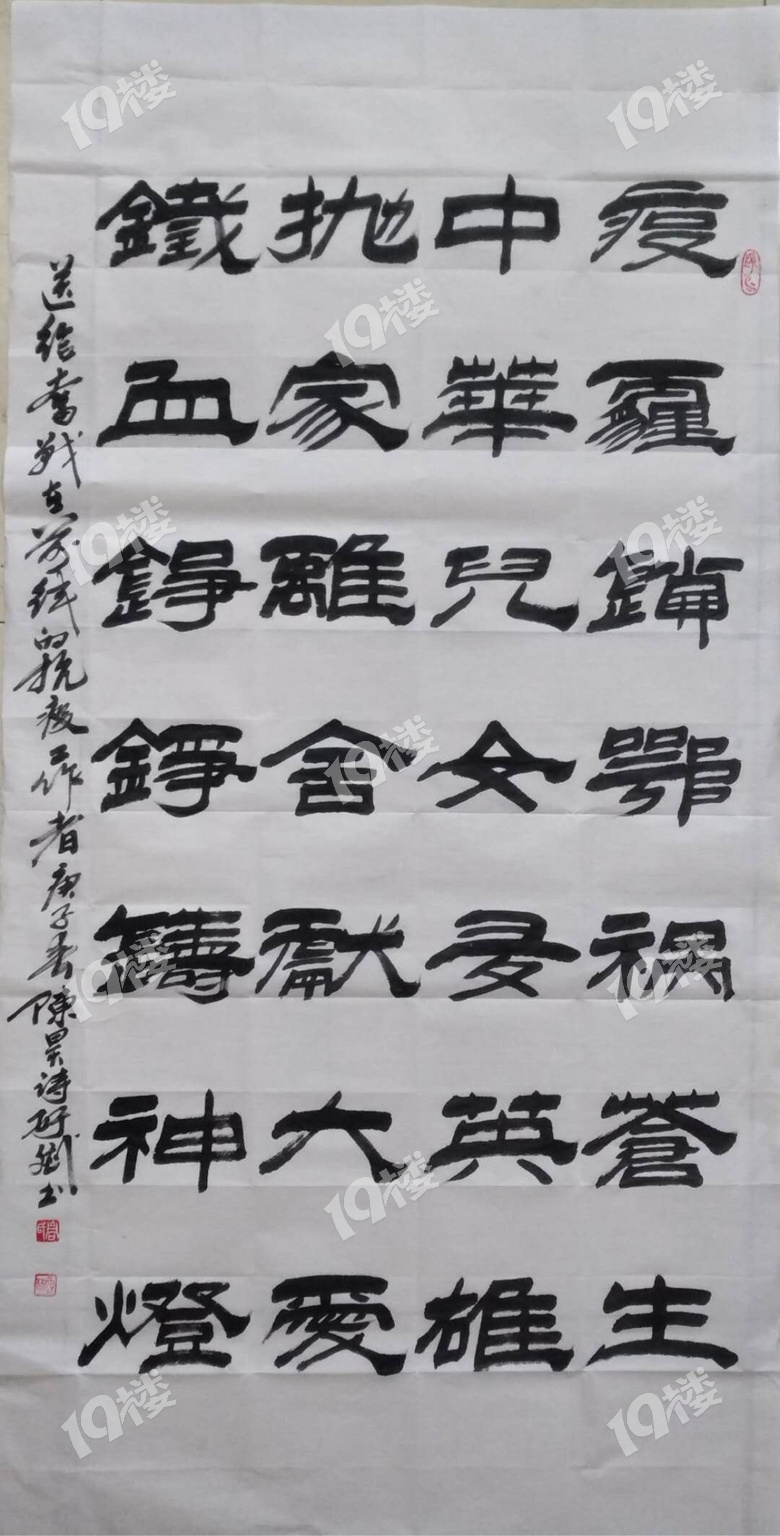 疫霾鎖鄂祸蒼生
中華兒女多英雄
抛家離舍獻大愛
鐵血錚錚鑄神燈
送给奮战在前线的抗疫作者庚子春陳昊诗
19楼
19楼
19楼
19楼
19楼
19楼
19楼
19楼
19楼
19楼
19楼